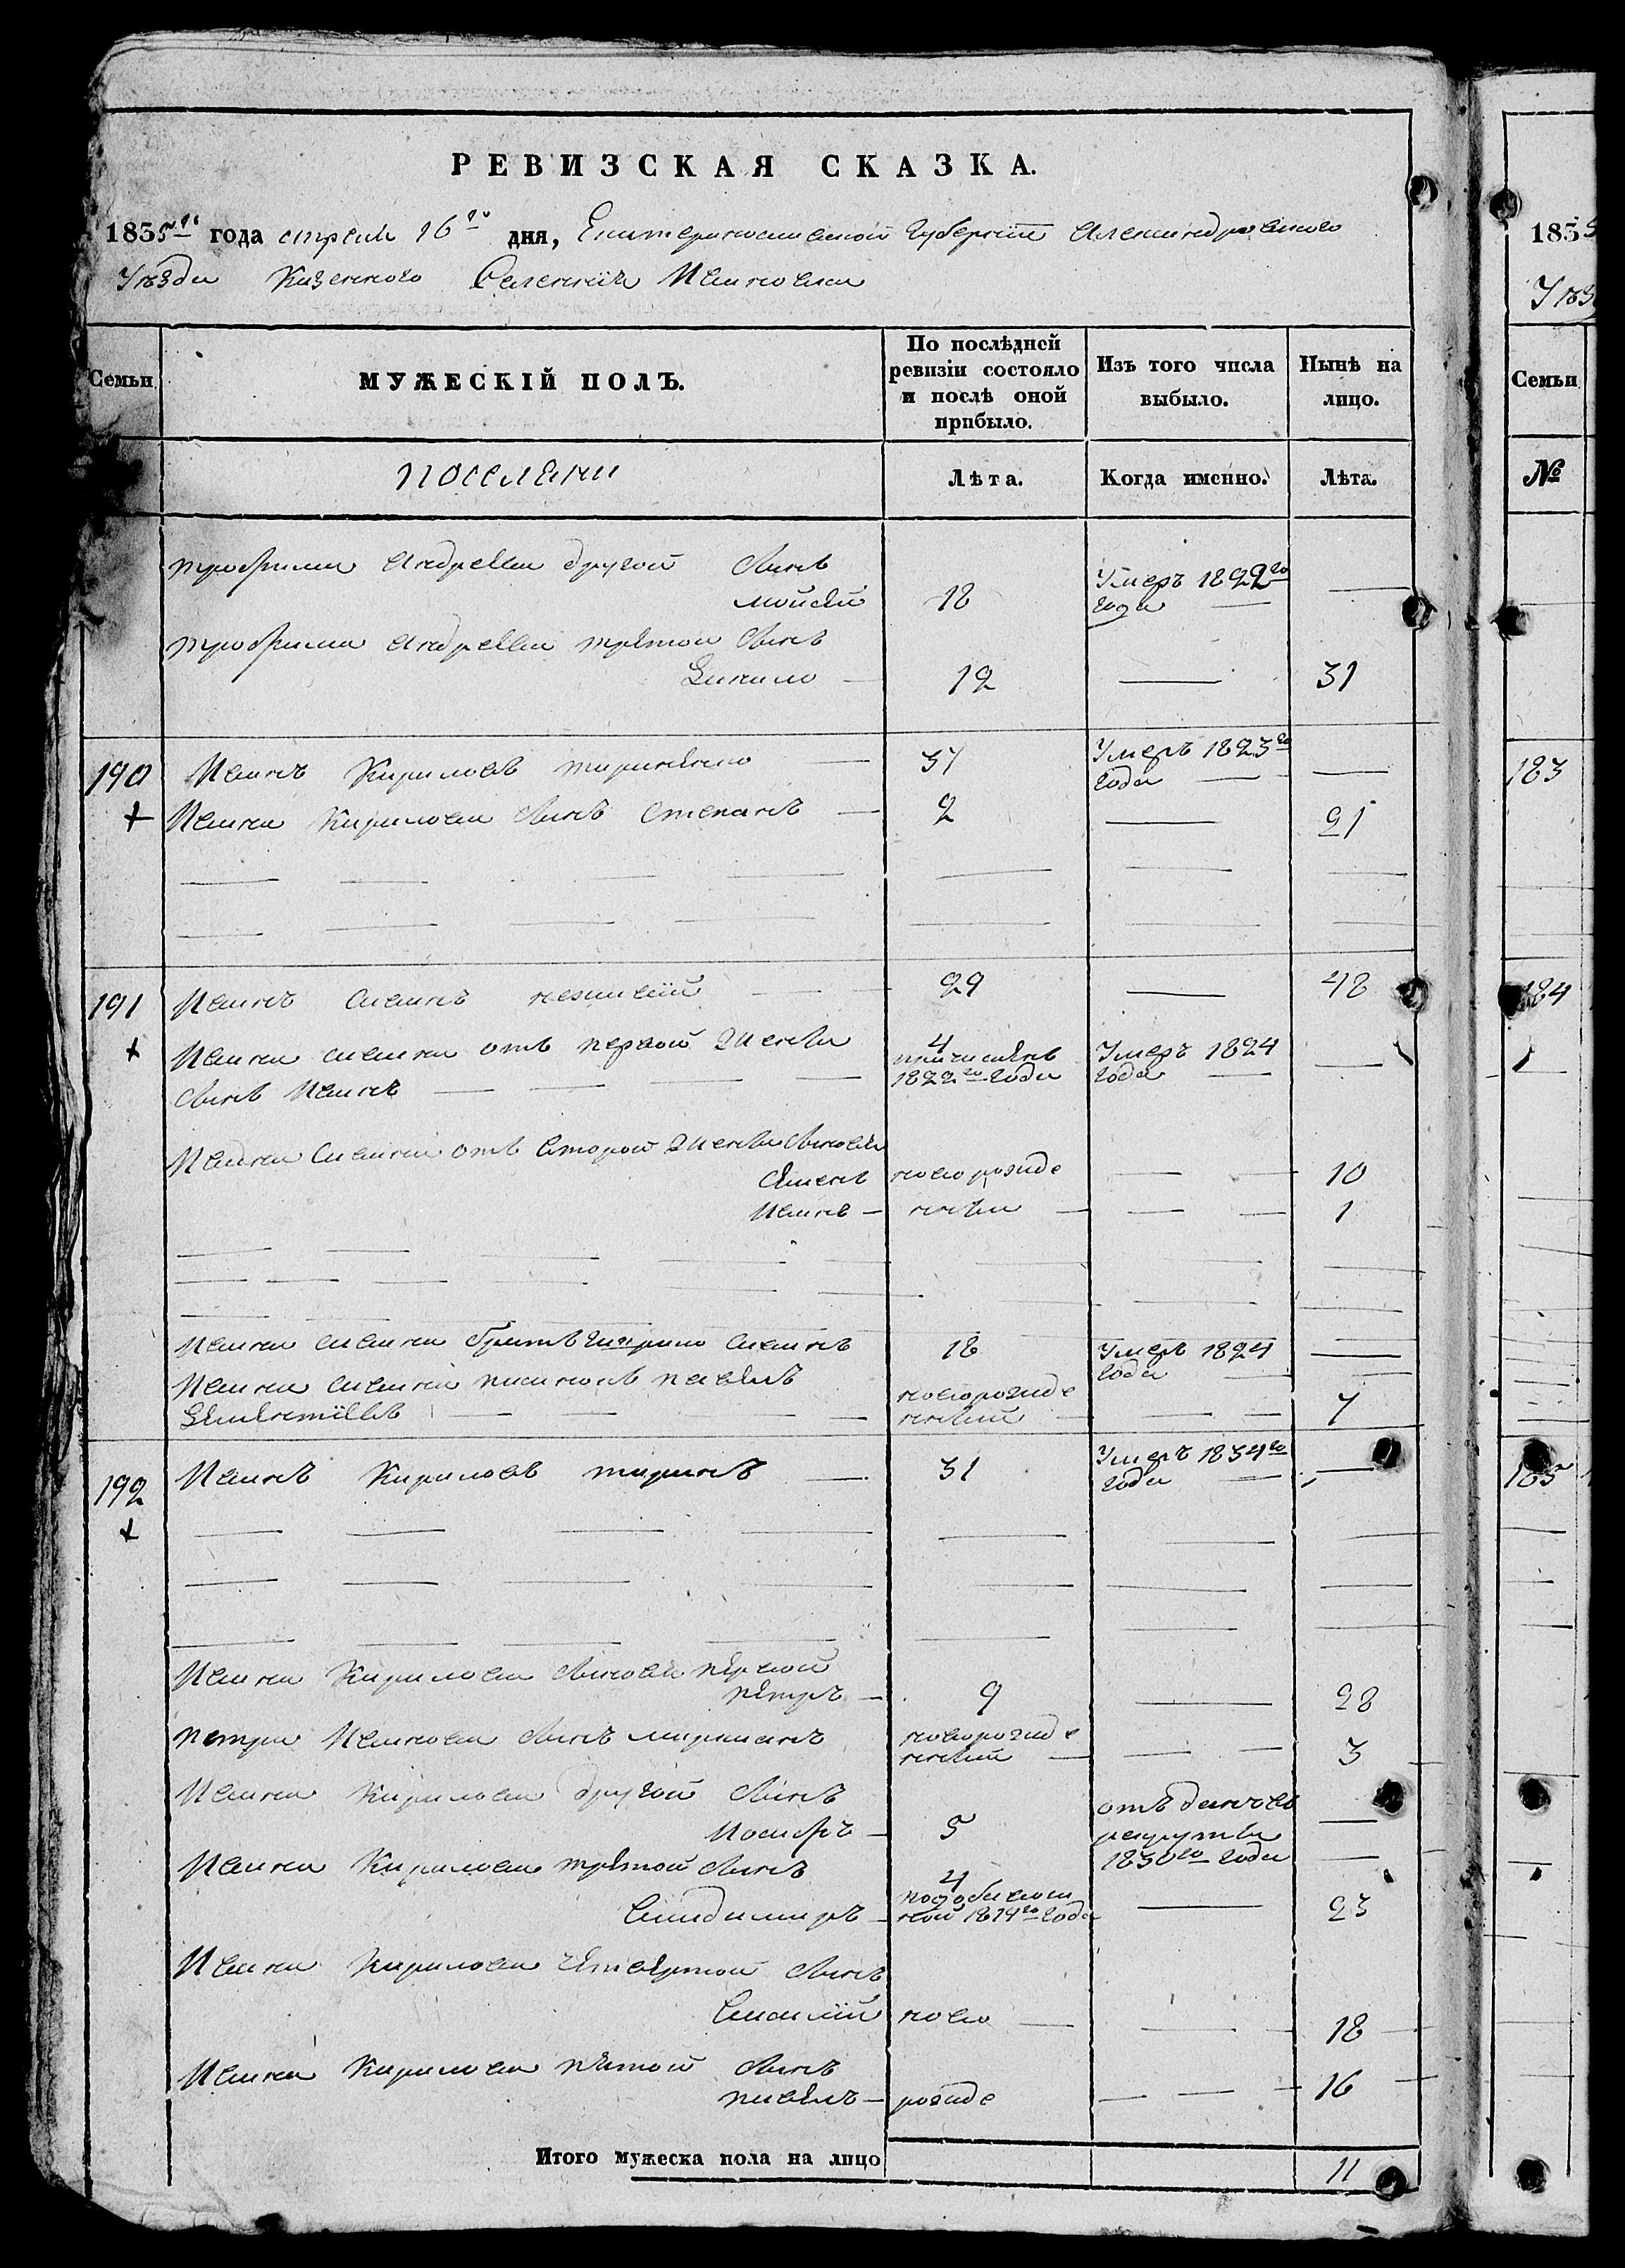 РЕВИЗСКАЯ СКАЗКА.
1835го года апреля 16го дня, Екатеринославской Губернии Александровского
Уѣзда Казенного Селения Ивановка
Семьи
МУЖЕСКІЙ ПОЛЪ.
По послѣдней ревизіи состояло и послѣ оной прибыло.
Изъ того числа выбыло.
Нынѣ на лицо.
поселяни
Лѣта.
Когда именно.
Лѣта.
трофима андреева другой сынъ
мойсей 18 Умеръ 1822го года
трофима андреева третой сынъ
Данило 12 31
190 Иванъ Кириловъ 37 Умеръ 1823го года
Ивана Кирилова сынъ Степанъ 2 21
191 Иванъ 29 48
Ивана от первой жены 4 1822го года Умеръ 1824 года
сынъ Иванъ
Ивана от второй жены сыновья
Семенъ новорожде 10
Иванъ нныи 1
Ивана братъ 18 Умеръ 1824 года
Ивана павелъ новорожде
Дементіевъ нный 7
192 Иванъ Кириловъ 31 Умеръ 1834го года
Ивана Кирилова сыновья первой
петръ 9 28
петра Иванова сынъ новорожде
нный 3
Ивана Кирилова другой сынъ
Иосифъ 5 отъданъ въ рекруты 1830го года
Ивана Кирилова третой сынъ
4
1814го года 23
Ивана Кирилова четвертой сынъ
Василий ново 18
Ивана Кирилова пятой сынъ
павелъ рожде 16
Итого мужеска пола на лицо 11
1835
Семьи
№
183
184
185